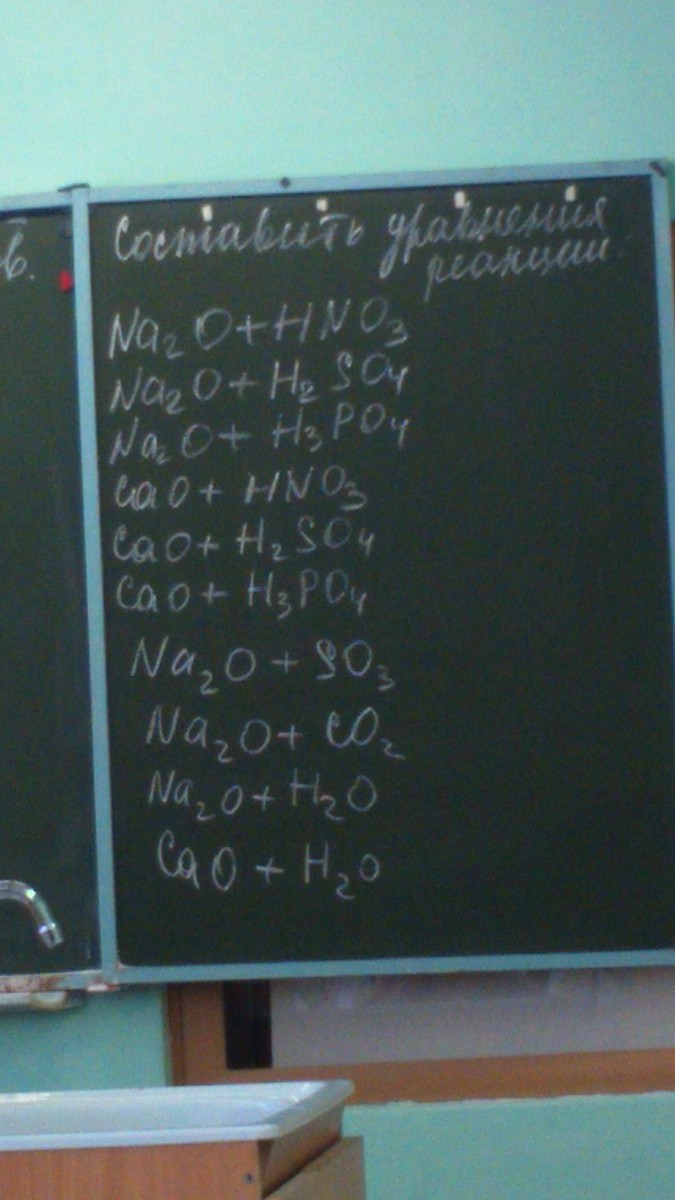 в.
Составить уравнения
реакции.
Na₂O + HNO₃
Na₂O + H₂SO₄
Na₂O + H₃PO₄
CaO + HNO₃
CaO + H₂SO₄
CaO + H₃PO₄
Na₂O + SO₃
Na₂O + CO₂
Na₂O + H₂O
CaO + H₂O